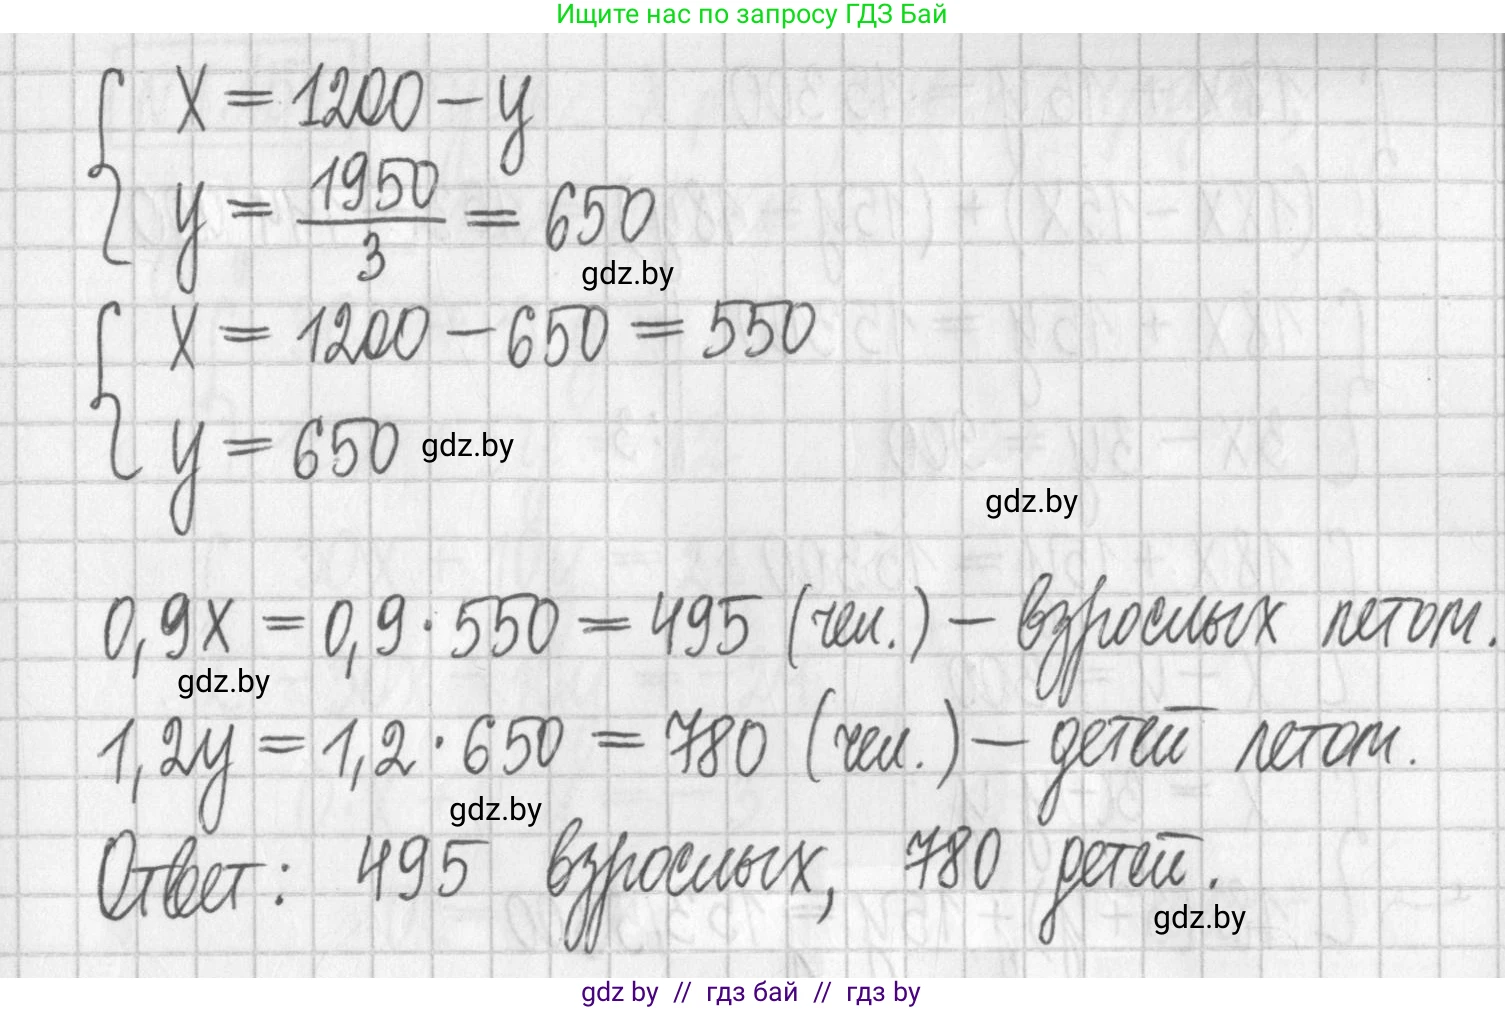 Ищите нас по запросу ГДЗ Бай
{ x = 1200 - y
y = 1950/3 = 650
gdz.by
{ x = 1200 - 650 = 550
y = 650 gdz.by
gdz.by
0,9x = 0,9 · 550 = 495 (чел.) - взрослых летом.
gdz.by
1,2y = 1,2 · 650 = 780 (чел.) - детей летом.
gdz.by
Ответ: 495 взрослых, 780 детей.
gdz.by
gdz by // гдз бай // гдз by